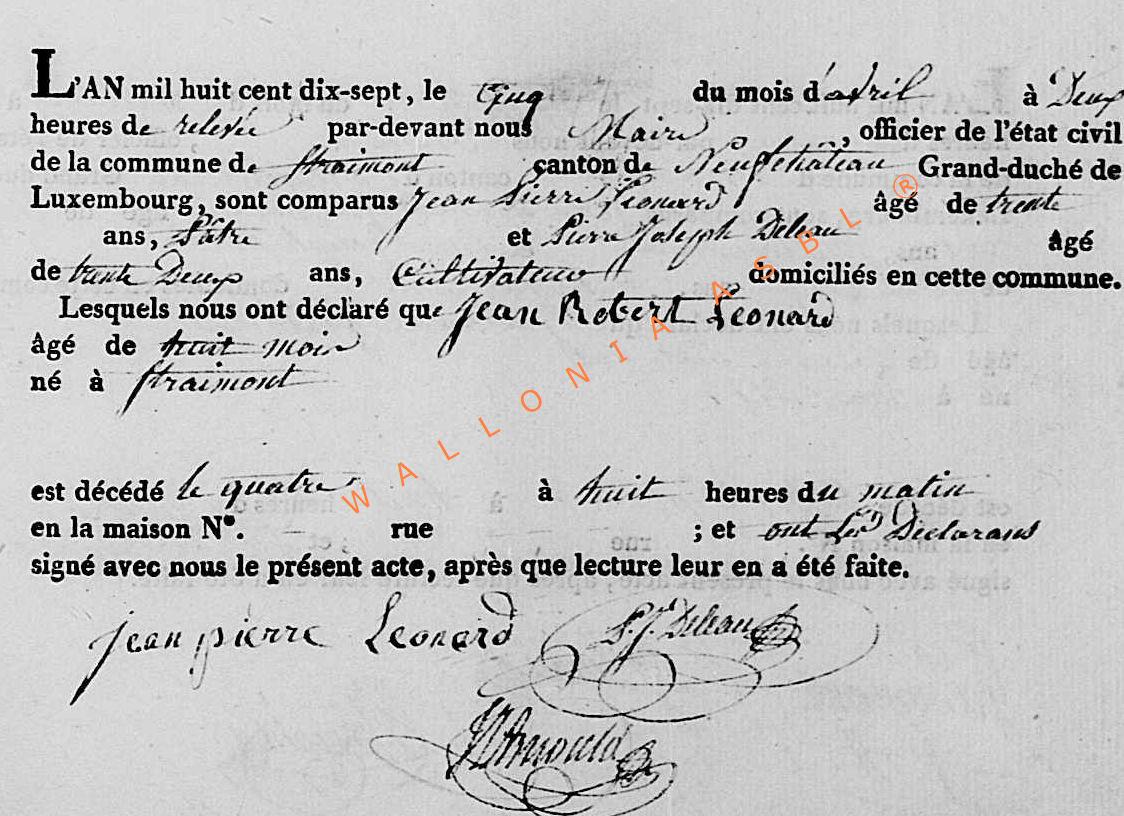 L'AN mil huit cent dix-sept, le Cinq du mois d'avril à Deux
heures de relevée par-devant nous Maire, officier de l'état civil
de la commune de Straimont canton de Neufchâteau Grand-duché de
Luxembourg, sont comparus Jean Pierre Leonard âgé de trente
ans, Pâtre et Pierre Joseph Deleau âgé
de trente Deux ans, Cultivateur domiciliés en cette commune.
Lesquels nous ont déclaré que Jean Robert Leonard
âgé de huit mois
né à Straimont
est décédé le quatre à huit heures du matin
en la maison N°. rue ; et ont les Déclarans
signé avec nous le présent acte, après que lecture leur en a été faite.
jean pierre Leonard P. J. Deleau
WALLONIA ASBL ®